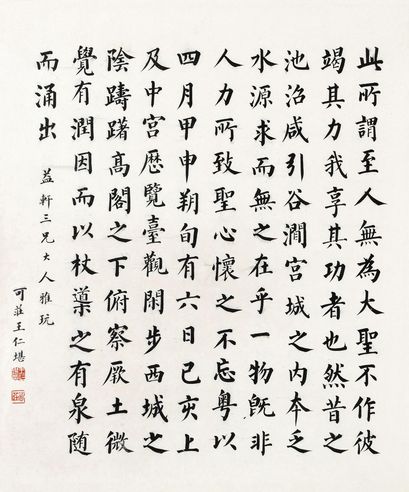 此所謂至人無為大聖不作彼
竭其力我享其功者也然昔之
池沼咸引谷澗宮城之內本乏
水源求而無之在乎一物既非
人力所致聖心懷之不忘粵以
四月甲申朔旬有六日己亥上
及中宮歷覽臺觀閑步西城之
陰躊躇高閣之下俯察厥土微
覺有潤因而以杖導之有泉隨
而涌出
益軒三兄大人雅玩
可莊王仁堪